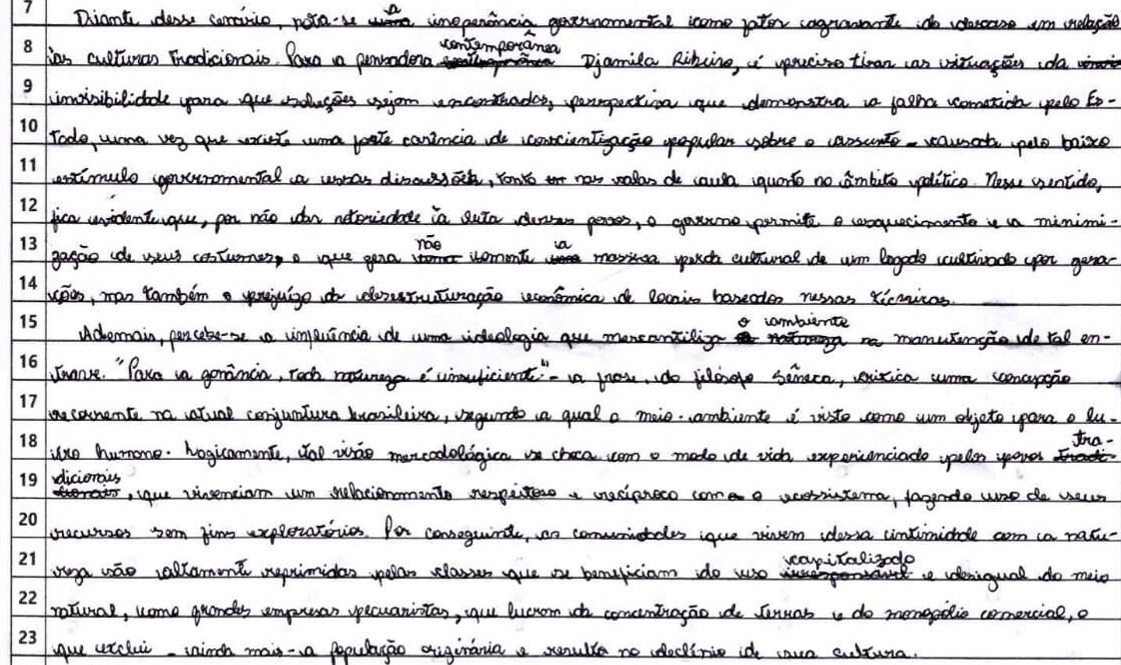 7 Diante desse cenário, nota-se a inoperância governamental como fator agravante do descaso em relação
8 às culturas tradicionais. Para a pensadora contemporânea Djamila Ribeiro, é preciso tirar as situações da
9 invisibilidade para que soluções sejam encontradas, perspectiva que demonstra a falha cometida pelo Es-
10 tado, uma vez que existe uma forte carência de conscientização popular sobre o assunto - causada pelo baixo
11 estímulo governamental a essas discussões, tanto nas salas de aula quanto no âmbito político. Nesse sentido,
12 fica evidente que, por não dar notoriedade à luta desses povos, o governo permite o esquecimento e a minimi-
13 zação de seus costumes, o que gera não somente a massiva perda cultural de um legado cultivado por gera-
14 ções, mas também o prejuízo da desestruturação econômica de locais baseados nessas técnicas.
15 Ademais, percebe-se a influência de uma ideologia que mercantiliza o ambiente na manutenção de tal en-
16 trave. "Para a ganância, toda natureza é insuficiente" - a frase, do filósofo Sêneca, critica uma concepção
17 recorrente na atual conjuntura brasileira, segundo a qual o meio-ambiente é visto como um objeto para o lu-
18 cro humano. Logicamente, tal visão mercadológica se choca com o modo de vida experienciado pelos povos tra-
19 dicionais, que vivenciam um relacionamento respeitoso e recíproco com o ecossistema, fazendo uso de seus
20 recursos sem fins exploratórios. Por conseguinte, as comunidades que vivem dessa intimidade com a natu-
21 reza são altamente reprimidas pelas classes que se beneficiam do uso capitalizado e desigual do meio
22 natural, como grandes empresas pecuaristas, que lucram da concentração de terras e do monopólio comercial, o
23 que exclui - ainda mais - a população originária e resulta no declínio de sua cultura.